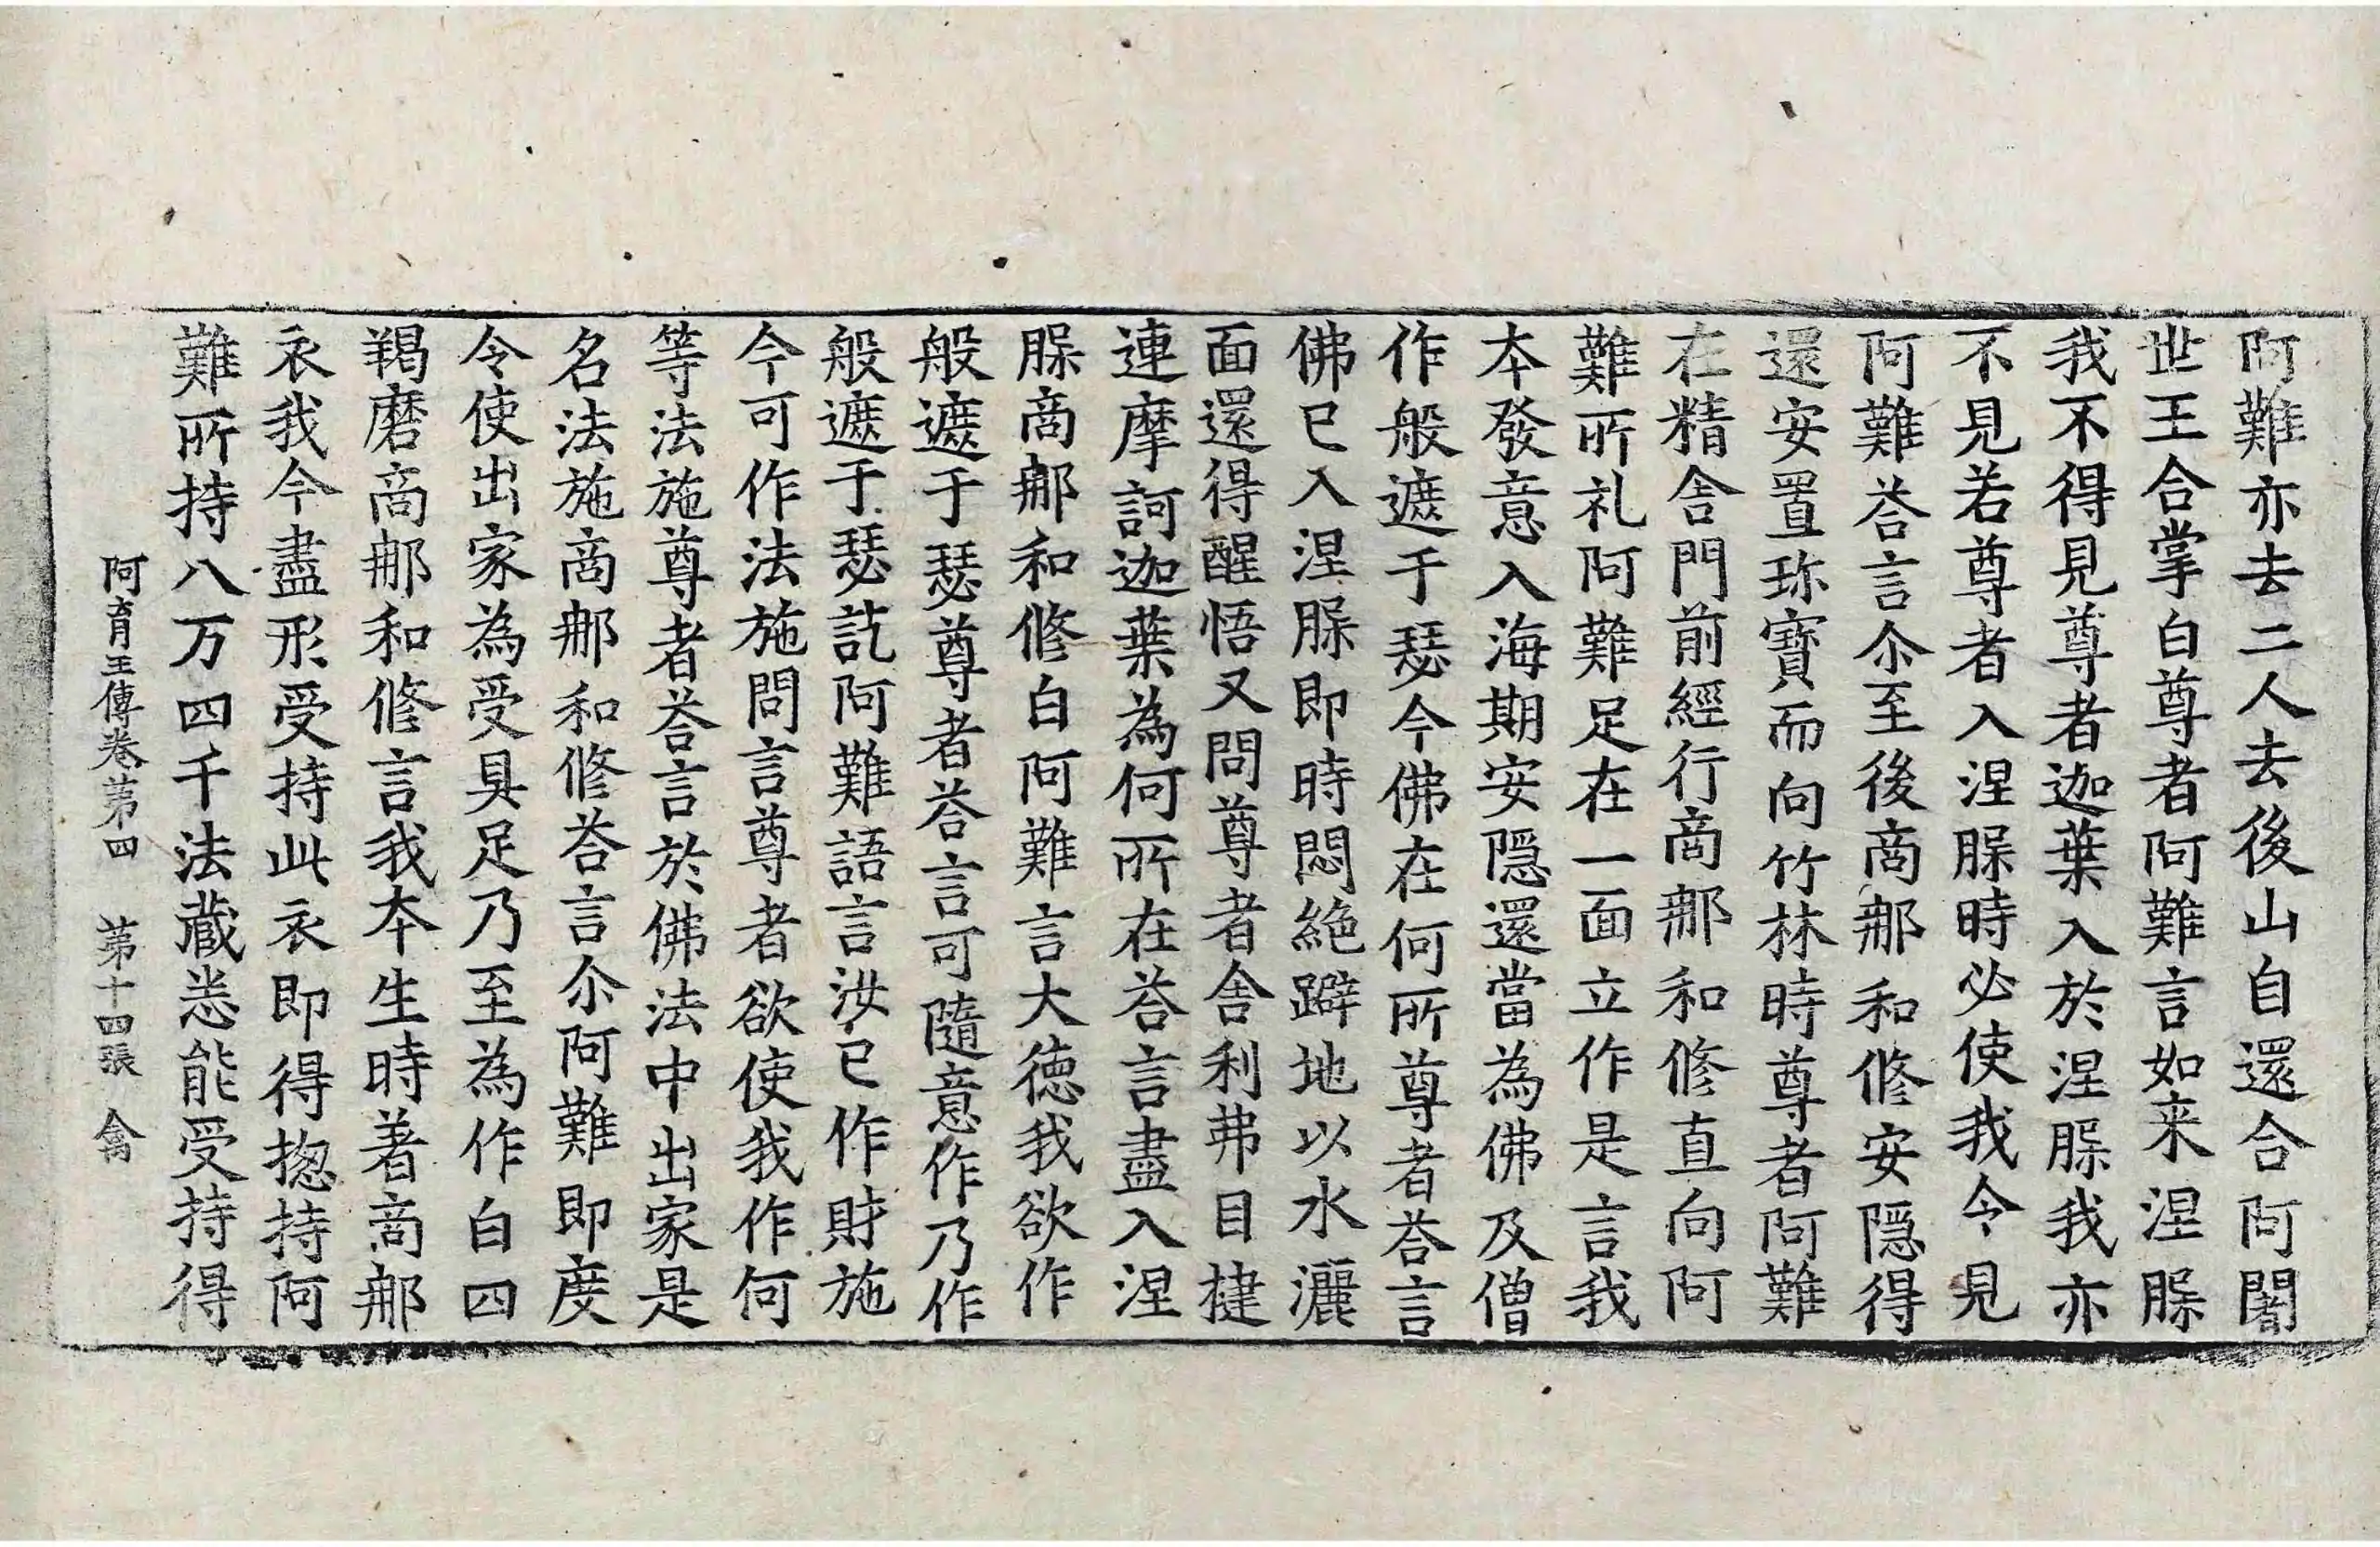 阿難亦去二人去後山自還合阿闍
世王合掌白尊者阿難言如来涅槃
我不得見尊者迦葉入於涅槃我亦
不見若尊者入涅槃時必使我今見
阿難荅言尒至後啇郍和修安隠得
還安置珎寶而向竹林時尊者阿難
在精舎門前經行啇郍和修直向阿
難所礼阿難足在一面立作是言我
本發意入海期安隠還當為佛及僧
作般遮于瑟今佛在何所尊者荅言
佛已入涅槃即時悶絶躃地以水灑
面還得醒悟又問尊者舎利弗目揵
連摩訶迦葉為何所在荅言盡入涅
槃啇郍和修白阿難言大徳我欲作
般遮于瑟尊者荅言可隨意作乃作
般遮于瑟訖阿難語言汝已作財施
今可作法施問言尊者欲使我作何
等法施尊者荅言於佛法中出家是
名法施啇郍和修荅言尒阿難即度
令使出家為受具足乃至為作白四
羯磨啇郍和修言我本生時著啇郍
衣我今盡形受持此衣即得揔持阿
難所持八万四千法蔵悉能受持得
阿育王傳卷第四 第十四張 禽